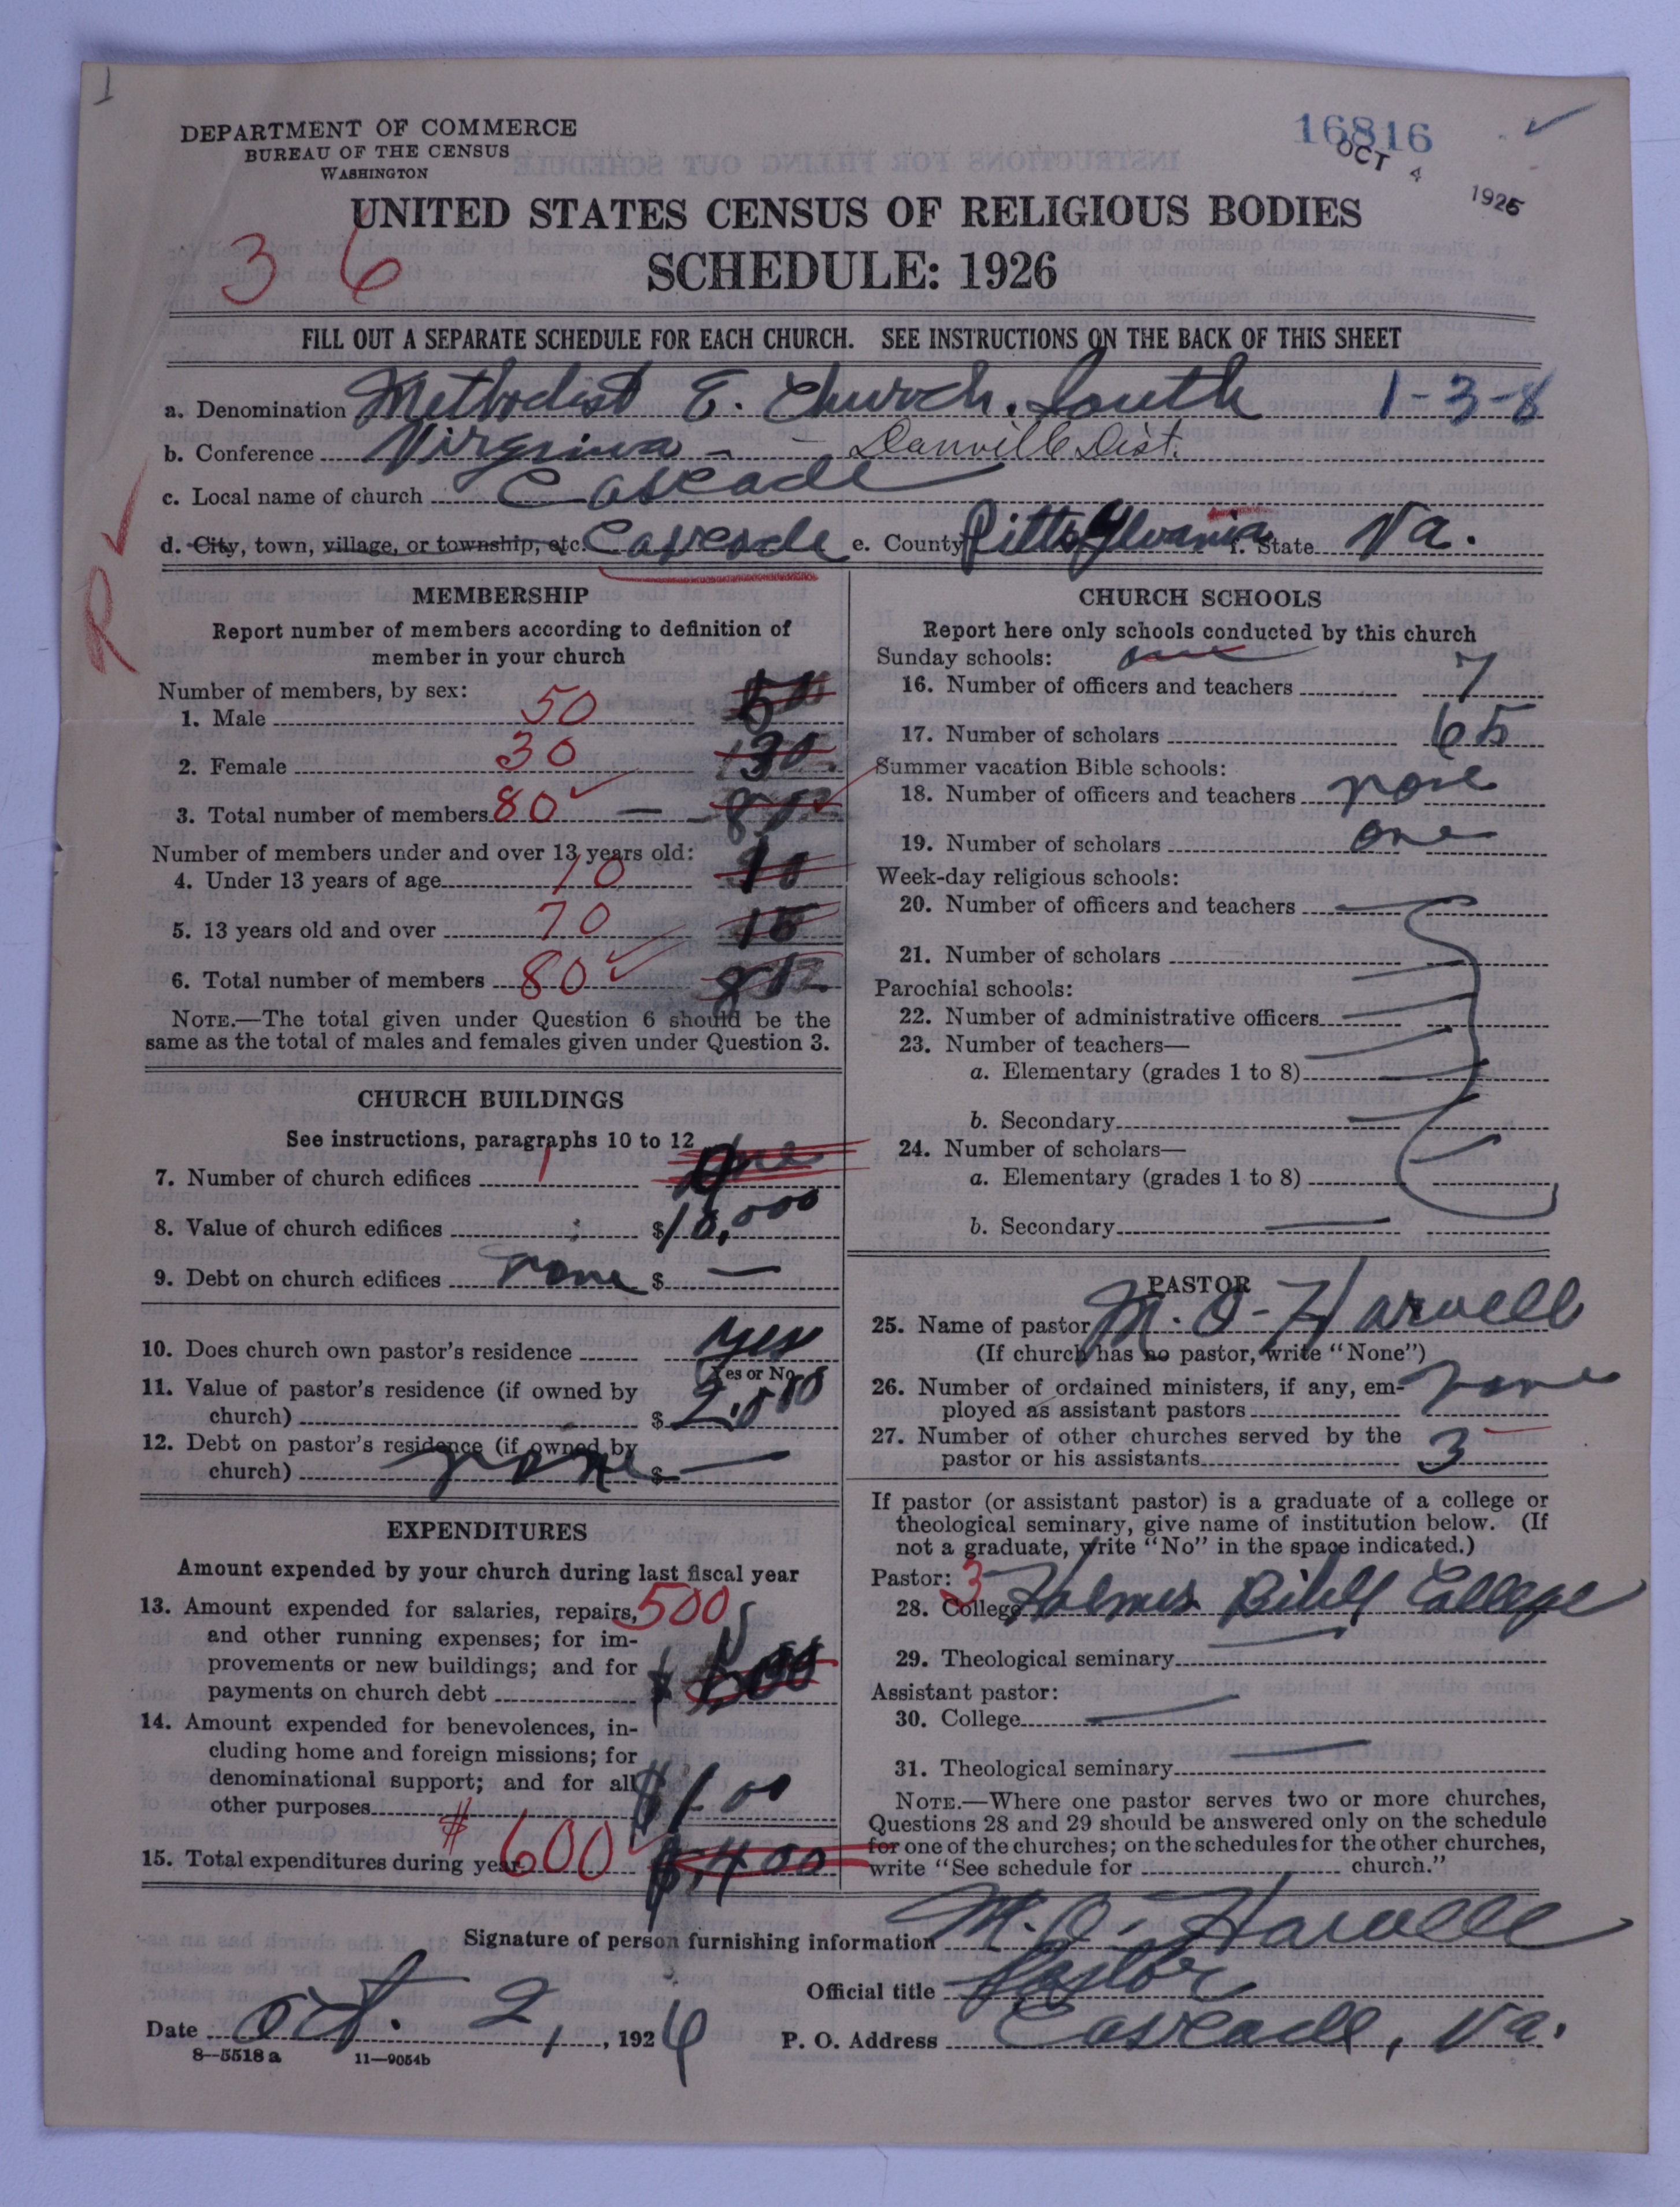 1
DEPARTMENT OF COMMERCE
BUREAU OF THE CENSUS
WASHINGTON
16816
OCT 4 1926
UNITED STATES CENSUS OF RELIGIOUS BODIES
SCHEDULE: 1926
36
FILL OUT A SEPARATE SCHEDULE FOR EACH CHURCH. SEE INSTRUCTIONS ON THE BACK OF THIS SHEET
a. Denomination Methodist E. Church, South 1-3-8
b. Conference Virginia - - Danville Dist.
c. Local name of church Cascade
d. City, town, village, or township, etc. Cascade e. County Pittsylvania f. State Va.
R
MEMBERSHIP
Report number of members according to definition of
member in your church
Number of members, by sex:
1. Male 50 50
2. Female 30 30
3. Total number of members 80 —
Number of members under and over 13 years old:
4. Under 13 years of age 10 10
5. 13 years old and over 70 15
6. Total number of members 80
NOTE.—The total given under Question 6 should be the
same as the total of males and females given under Question 3.
CHURCH BUILDINGS
See instructions, paragraphs 10 to 12
7. Number of church edifices 1 one
8. Value of church edifices $10,000
9. Debt on church edifices none $ —
10. Does church own pastor's residence yes
Yes or No
11. Value of pastor's residence (if owned by
church) $ 2,000
12. Debt on pastor's residence (if owned by
church) none $ —
EXPENDITURES
Amount expended by your church during last fiscal year
13. Amount expended for salaries, repairs, 500
and other running expenses; for im-
provements or new buildings; and for
payments on church debt $ 500
14. Amount expended for benevolences, in-
cluding home and foreign missions; for
denominational support; and for all
other purposes $100
15. Total expenditures during year $600 $400
CHURCH SCHOOLS
Report here only schools conducted by this church
Sunday schools: one
16. Number of officers and teachers 7
17. Number of scholars 65
Summer vacation Bible schools:
18. Number of officers and teachers none
19. Number of scholars one
Week-day religious schools:
20. Number of officers and teachers —
21. Number of scholars
Parochial schools:
22. Number of administrative officers —
23. Number of teachers—
a. Elementary (grades 1 to 8) —
b. Secondary —
24. Number of scholars—
a. Elementary (grades 1 to 8)
b. Secondary —
PASTOR
25. Name of pastor M. O. Harvell
(If church has no pastor, write "None")
26. Number of ordained ministers, if any, em-
ployed as assistant pastors none
27. Number of other churches served by the
pastor or his assistants 3
If pastor (or assistant pastor) is a graduate of a college or
theological seminary, give name of institution below. (If
not a graduate, write "No" in the space indicated.)
Pastor: 3
28. College Holmes Bibll College
29. Theological seminary
Assistant pastor:
30. College —
31. Theological seminary —
NOTE.—Where one pastor serves two or more churches,
Questions 28 and 29 should be answered only on the schedule
for one of the churches; on the schedules for the other churches,
write "See schedule for church."
Signature of person furnishing information M. O. Harvell
Official title Pastor
Date Oct. 2, 1926 P. O. Address Cascade, Va.
8—5518 a 11—9054b